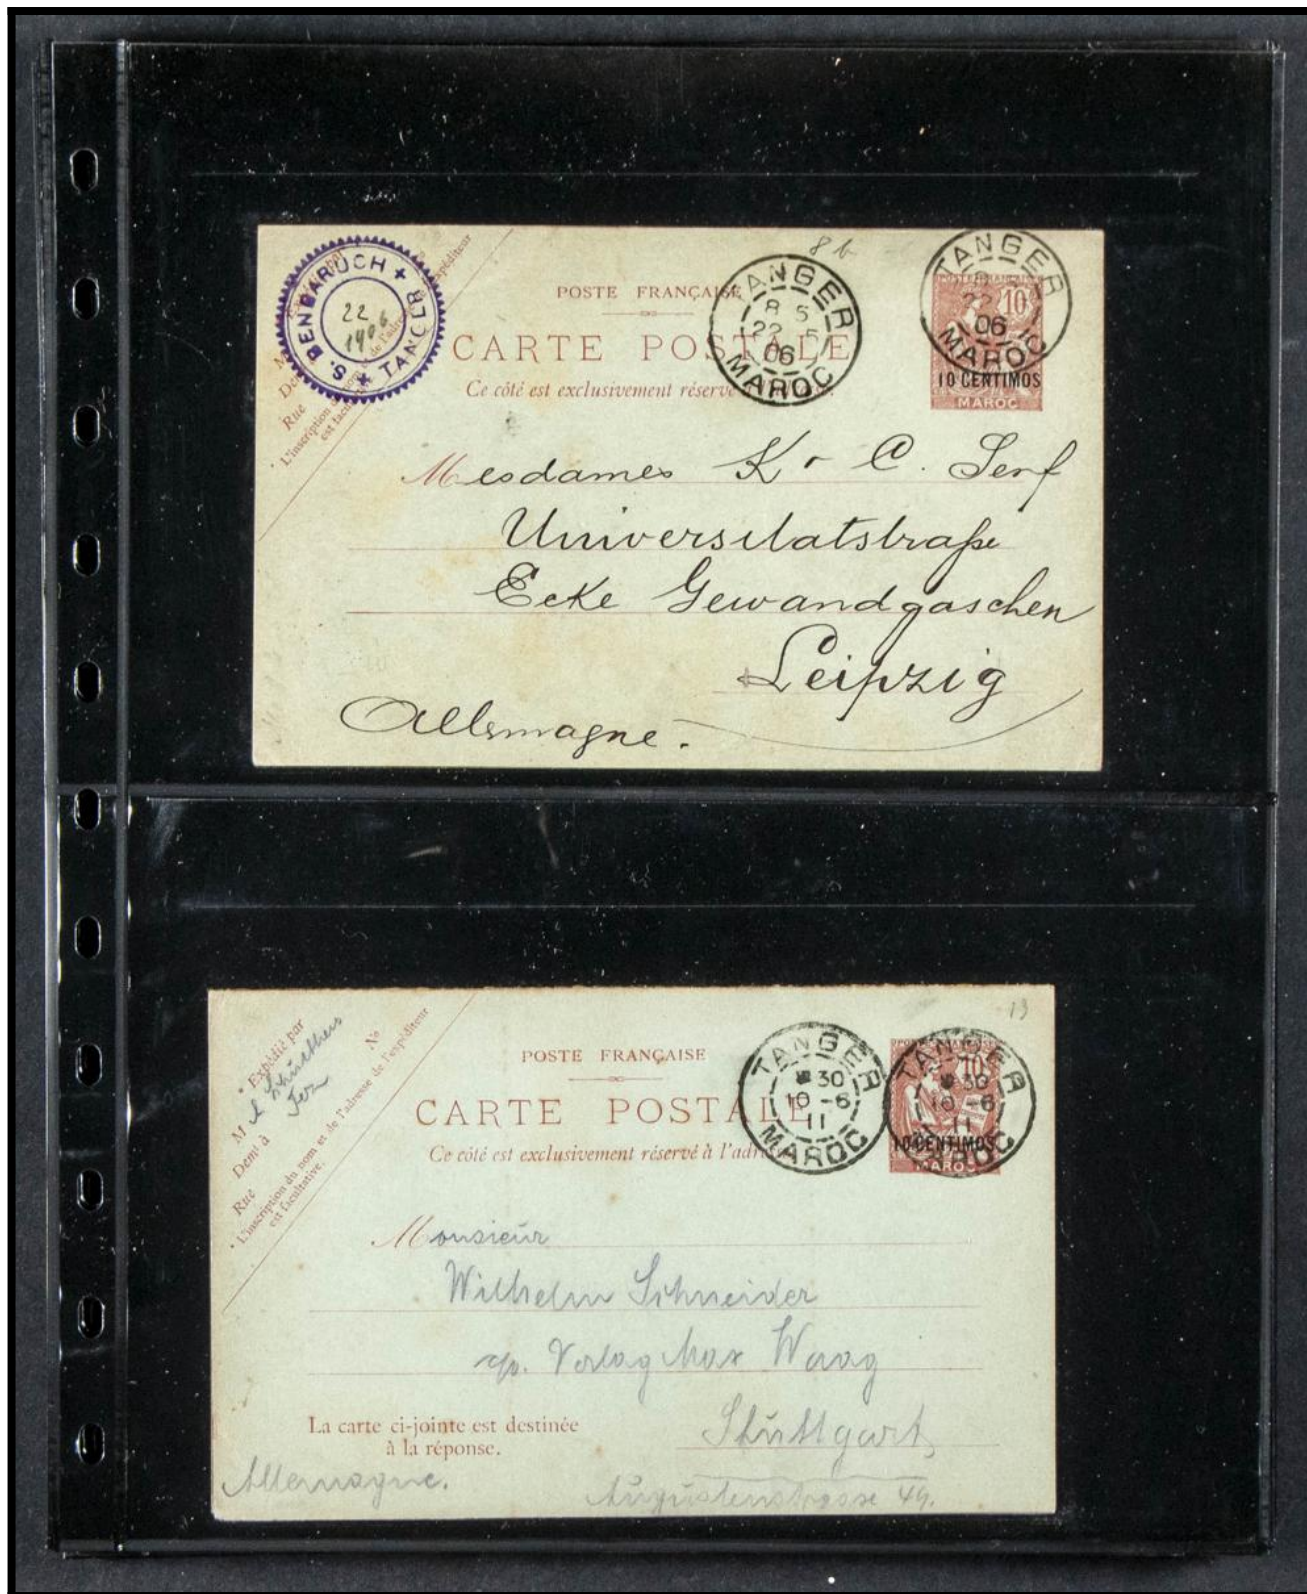 S. BENBARUCH + TANGER
22
1906
Rue
L'inscription du nom et de l'adresse de l'expéditeur
est facultative.
8 b
POSTE FRANÇAISE
CARTE POSTALE
Ce côté est exclusivement réservé à
TANGER
8 5
22 5
06
MAROC
TANGER
22
06
MAROC
10
10 CENTIMOS
MAROC
Mesdames K & C. Serf
Universitatstraße
Ecke Gewandgaschen
Leipzig
Allemagne.
Expédié par
M
Fez
Demt à
Rue
No
L'inscription du nom et de l'adresse de l'expéditeur
est facultative.
13
POSTE FRANÇAISE
CARTE POSTALE
Ce côté est exclusivement réservé à l'adresse
TANGER
30
10 -6
11
MAROC
TANGER
30
10 -6
11
MAROC
10
10 CENTIMOS
MAROC
Monsieur
Wilhelm Schneider
c/o. Verlag Max Waag
Stuttgart
La carte ci-jointe est destinée
à la réponse.
Allemagne.
Augustenstrasse 49.